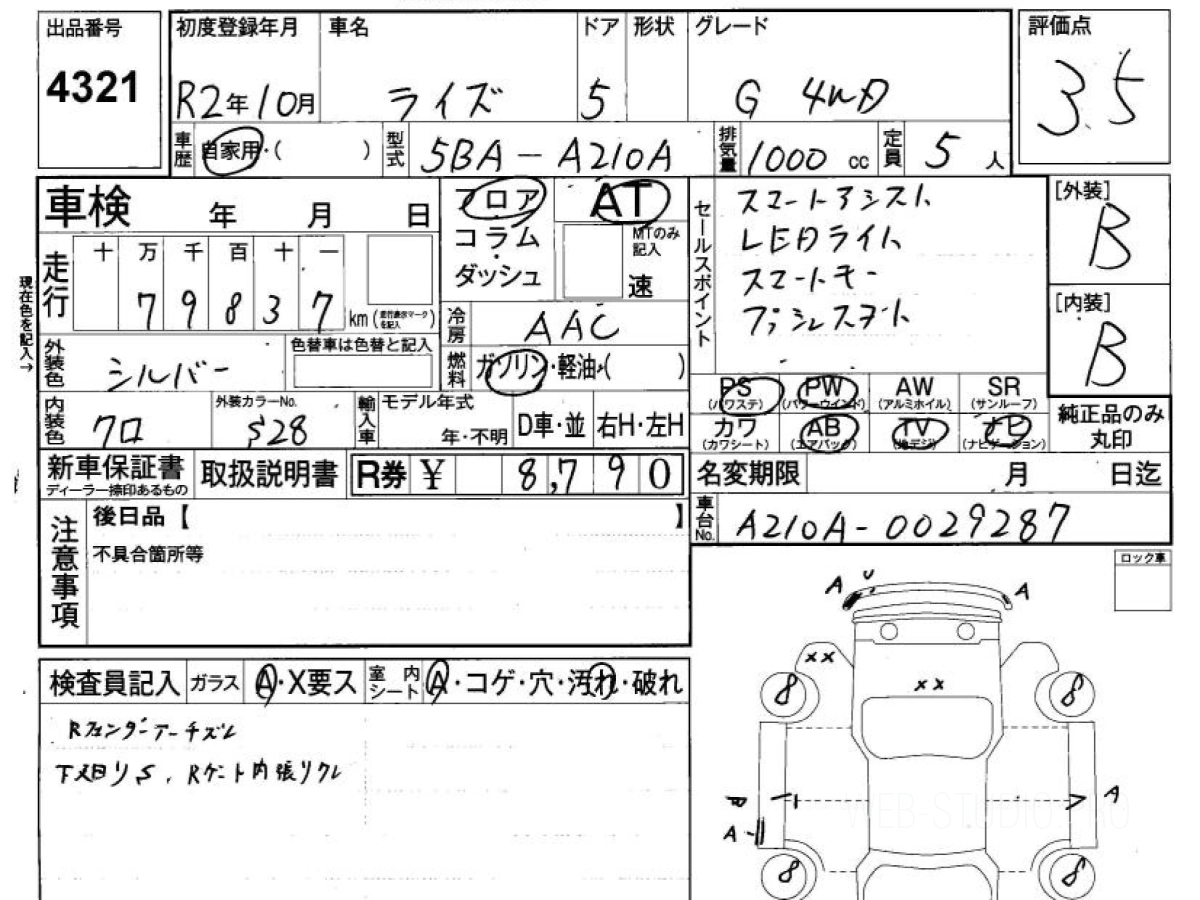 出品番号
4321
初度登録年月
R2年10月
車名
ライズ
ドア
5
形状
グレード
G 4WD
評価点
3.5
車歴
自家用・( )
型式
5BA-A210A
排気量
1000 cc
定員
5 人
車検 年 月 日
フロア
コラム
・
ダッシュ
AT
MTのみ
記入
速
現在色を記入→
走行
十 万 千 百 十 一
7 9 8 3 7
km (走行表示マークを記入)
冷房
AAC
燃料
ガソリン・軽油・( )
セールスポイント
スマートアシスト
LEDライト
スマートキー
プッシュスタート
[外装]
B
[内装]
B
外装色
シルバー
色替車は色替と記入
内装色
クロ
外装カラーNo.
S28
輸入車
モデル年式
年・不明
D車・並
右H・左H
PS
(パワステ)
PW
(パワーウインド)
AW
(アルミホイル)
SR
(サンルーフ)
カワ
(カワシート)
AB
(エアバック)
TV
(地デジ)
ナビ
(ナビゲーション)
純正品のみ
丸印
新車保証書
ディーラー捺印あるもの
取扱説明書
R券 ¥ 8,790
名変期限 月 日迄
車台No.
A210A-0029287
注意事項
後日品【 】
不具合箇所等
ロック車
検査員記入
ガラス
A・X要ス
室内シート
A・コゲ・穴・汚れ・破れ
Rフェンダーアーチズレ
下廻りS、Rゲート内張りワレ
A U
A
XX
XX
8
8
B
A
A
8
8
WEB-STUDIO